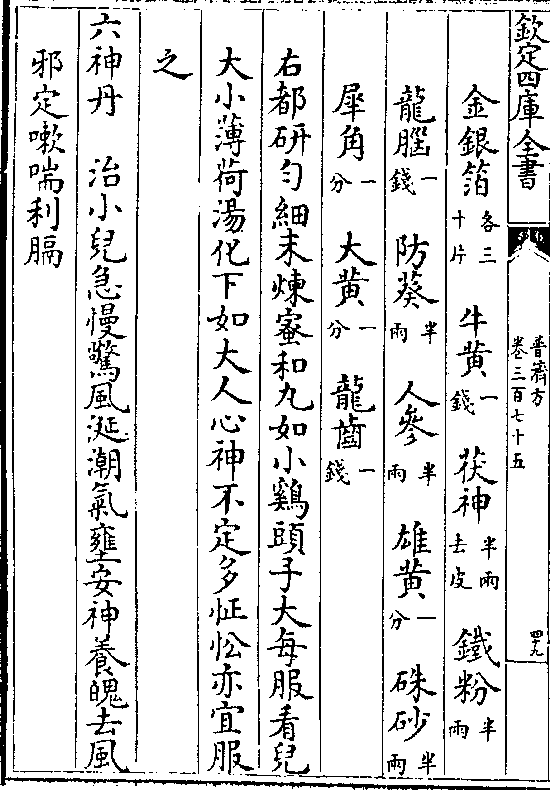 欽定四庫全書
普濟方
卷三百七十五
四九
金銀箔各三十片 牛黄一錢 茯神半兩去皮 鐵粉半兩
龍腦一錢 防葵半兩 人參半兩 雄黄一分 硃砂半兩
犀角一分 大黄一分 龍齒一錢
右都研勻細末煉蜜和丸如小鷄頭子大每服看兒
大小薄荷湯化下如大人心神不定多怔忪亦宜服
之
六神丹 治小兒急慢驚風涎潮氣壅安神養魄去風
邪定嗽喘利膈